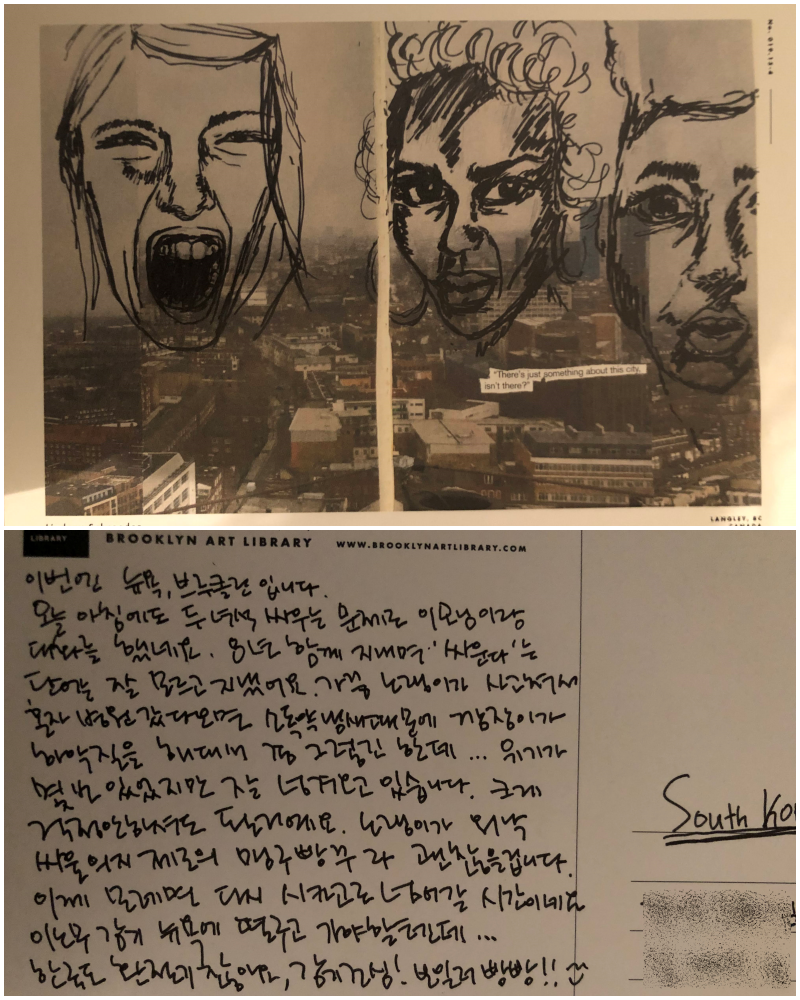 "There's just something about this city,
isn't there?"
LANGLEY, BC
CANADA
LIBRARY
BROOKLYN ART LIBRARY WWW.BROOKLYNARTLIBRARY.COM
이번엔 뉴욕, 브루클린 입니다.
오늘 아침에도 두 녀석 싸우는 문제로 이모님이랑
대화를 했네요. 8년 함께 지내며 '싸운다'는
단어는 잘 모르고 지냈어요. 가끔 노랭이가 사고쳐서
혼자 병원갔다오면 소독약냄새때문에 깜장이가
하악질을 해대서 좀 그렇긴 한데 ... 위기가
몇 번 있었지만 잘 넘겨오고 있습니다. 크게
걱정안하셔도 노랭이가 워낙
싸울의지 제로의 맹구빵꾸 라 괜찮을겁니다.
이제 모레면 다시 시카고로 넘어갈 시간이네요
이노무 감기 뉴욕에 떨구고 가야할텐데 ...
한국도 감기조심! 보일러 빵빵!!
South Ko